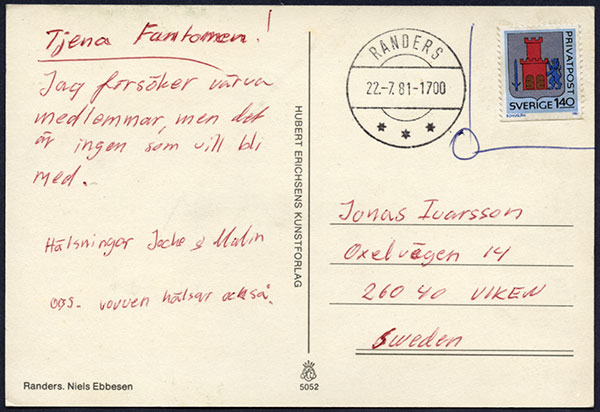 Tjena Fantomen!
Jag försöker värva
medlemmar, men det
är ingen som vill bli
med.
Hälsningar Jocke & Malin
obs. vovven hälsar också.
Randers. Niels Ebbesen
HUBERT ERICHSENS KUNSTFORLAG
5052
RANDERS
22.-7.81-1700
PRIVATPOST
SVERIGE 140
Jonas Ivarsson
Oxelvägen 14
260 40 VIKEN
Sweden